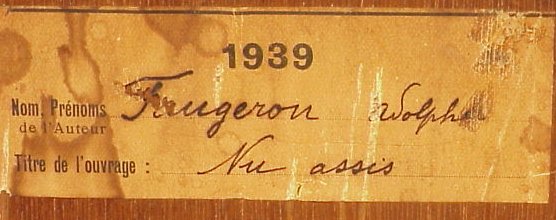 1939
Nom, Prénoms Faugeron Adolphe
de l'Auteur
Titre de l'ouvrage : Nu assis